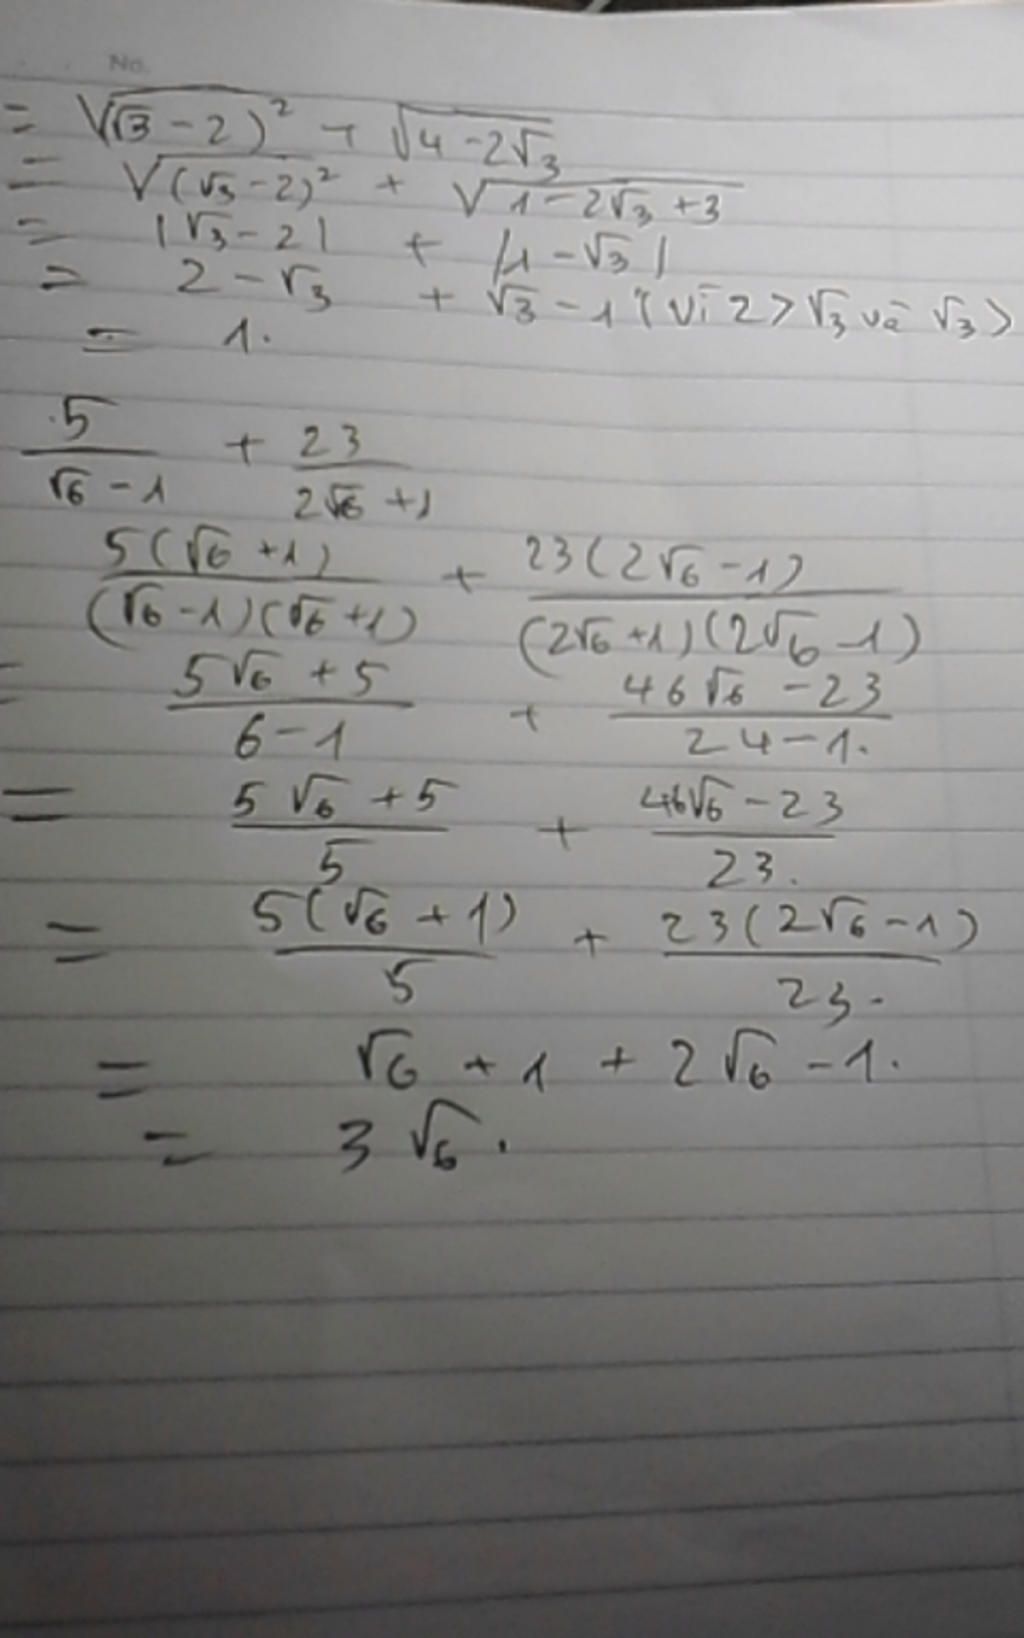 No.
= √(√3 - 2)² + √4 - 2√3
= √(√3 - 2)² + √1 - 2√3 + 3
= |√3 - 2| + |1 - √3|
= 2 - √3 + √3 - 1 (vì 2 > √3 và √3 >
= 1.
5/(√6 - 1) + 23/(2√6 + 1)
5(√6 + 1)/((√6 - 1)(√6 + 1)) + 23(2√6 - 1)/((2√6 + 1)(2√6 - 1))
= (5√6 + 5)/(6 - 1) + (46√6 - 23)/(24 - 1).
= (5√6 + 5)/5 + (46√6 - 23)/23.
= 5(√6 + 1)/5 + 23(2√6 - 1)/23.
= √6 + 1 + 2√6 - 1.
= 3√6.